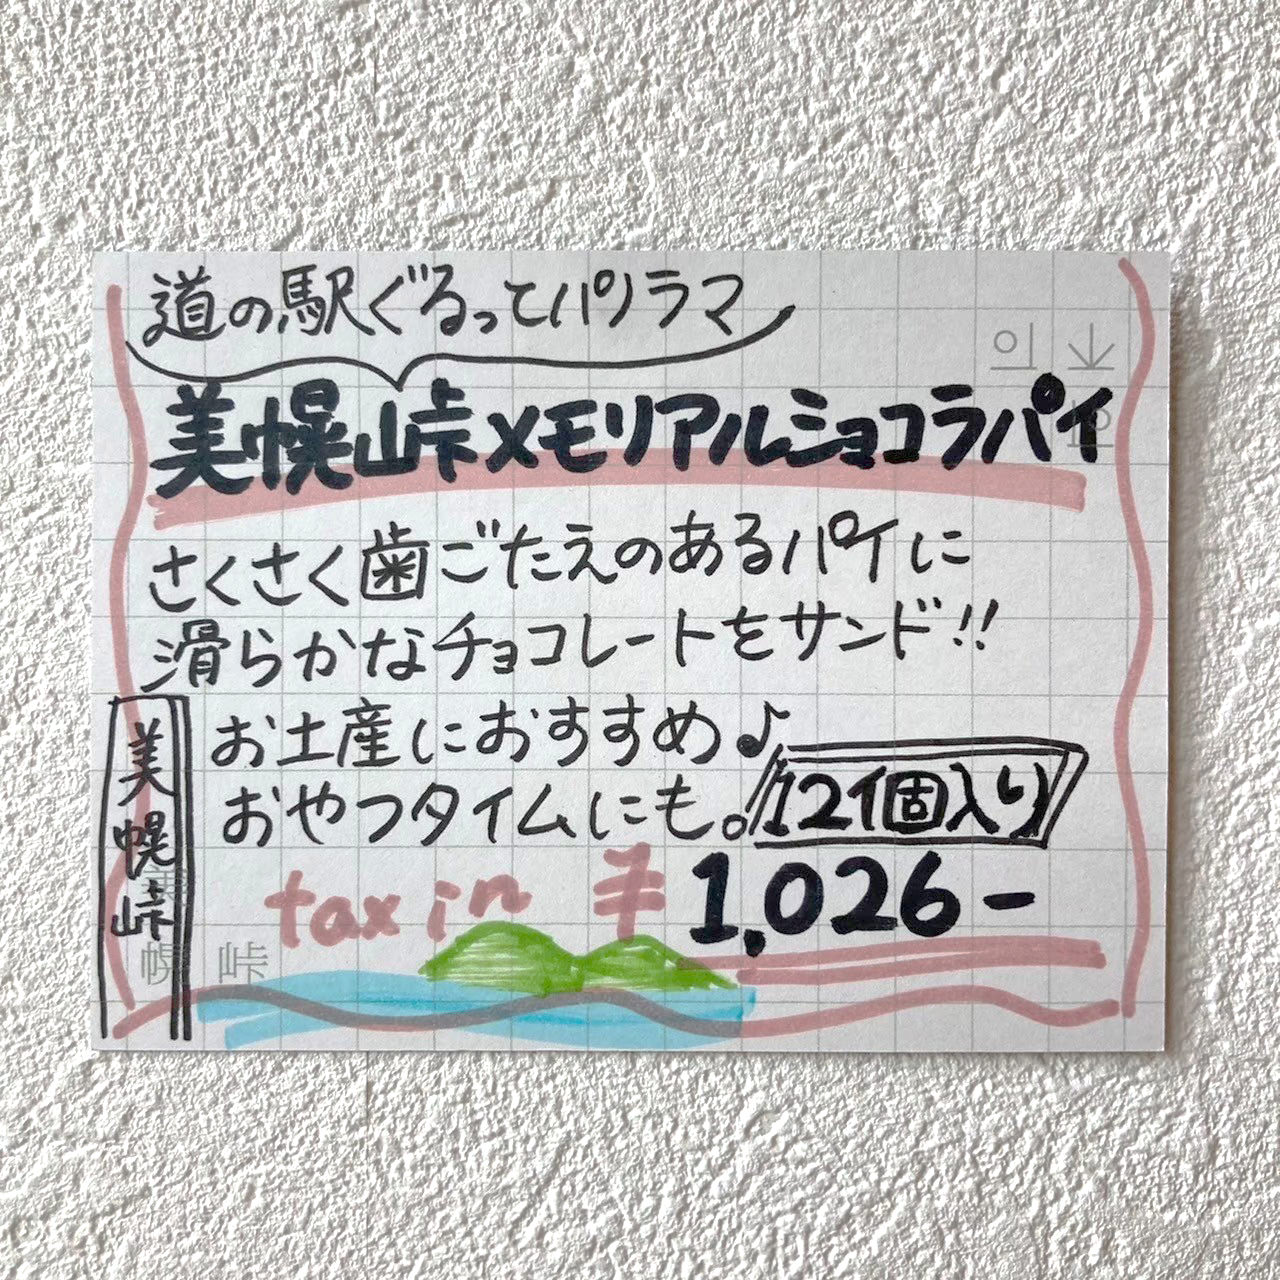 道の駅ぐるってパノラマ
美幌峠メモリアルショコラパイ
さくさく歯ごたえのあるパイに
滑らかなチョコレートをサンド!!
お土産におすすめ♪
おやつタイムにも。
12個入り
美幌峠
tax in ¥1,026-
幌 峠